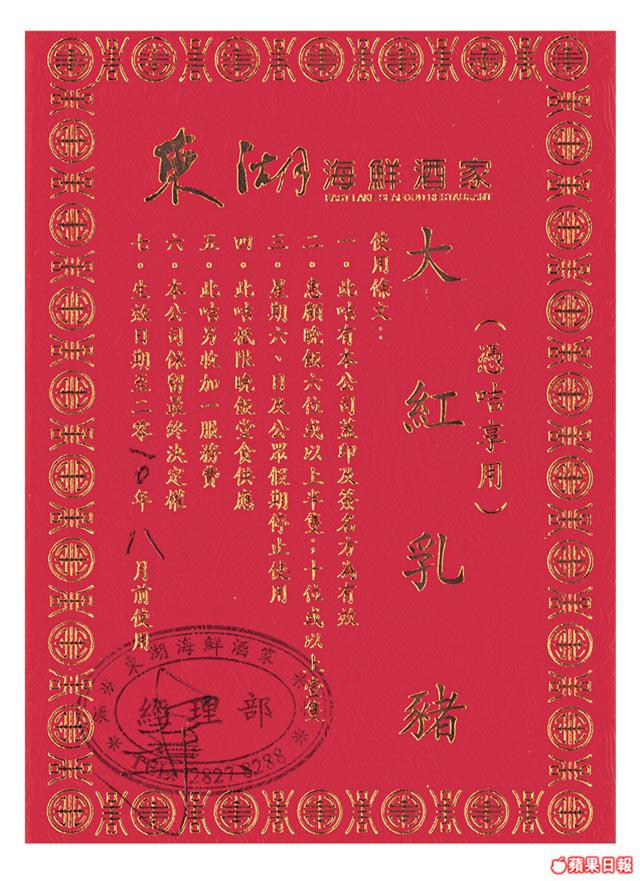 東湖海鮮酒家
EAST LAKE SEAFOOD RESTAURANT
(憑咭享用)
大紅乳豬
使用條文:
一。此咭有本公司蓋印及簽名方為有效
二。惠顧晚飯六位或以上半隻;十位或以上壹隻
三。星期六、日及公眾假期停止使用
四。此咭祗限晚飯堂食供應
五。此咭另收加一服務費
六。本公司保留最終決定權
七。生效日期至二零10年八月前使用
東湖海鮮酒家
經理部
TEL: 2827 8288
蘋果日報